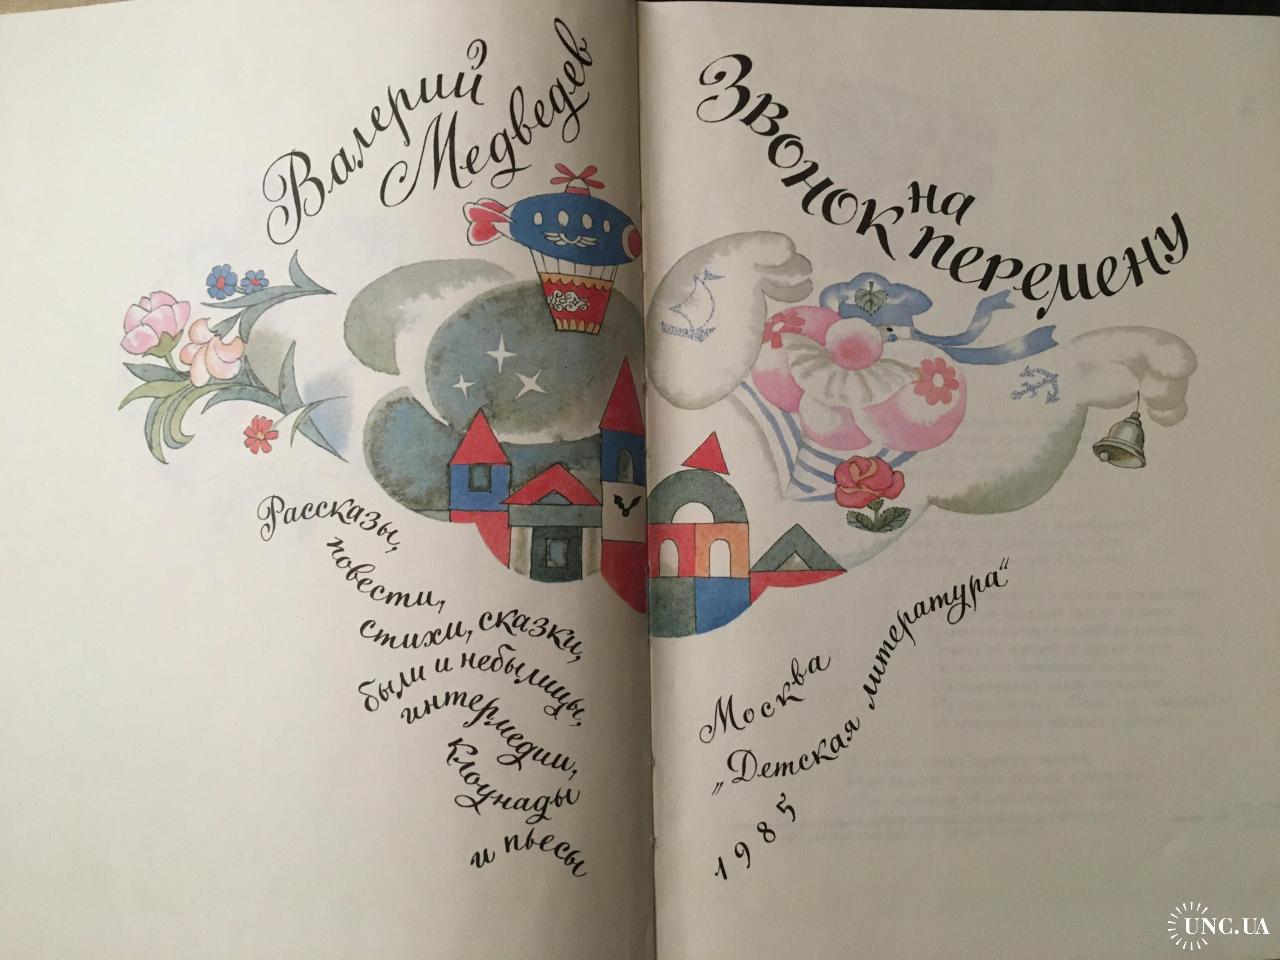 Валерий
Медведев
Рассказы,
повести,
стихи, сказки,
были и небылицы,
интермедии,
клоунады
и пьесы
Звонок
на
перемену
Москва
„Детская литература“
1985
UNC.UA